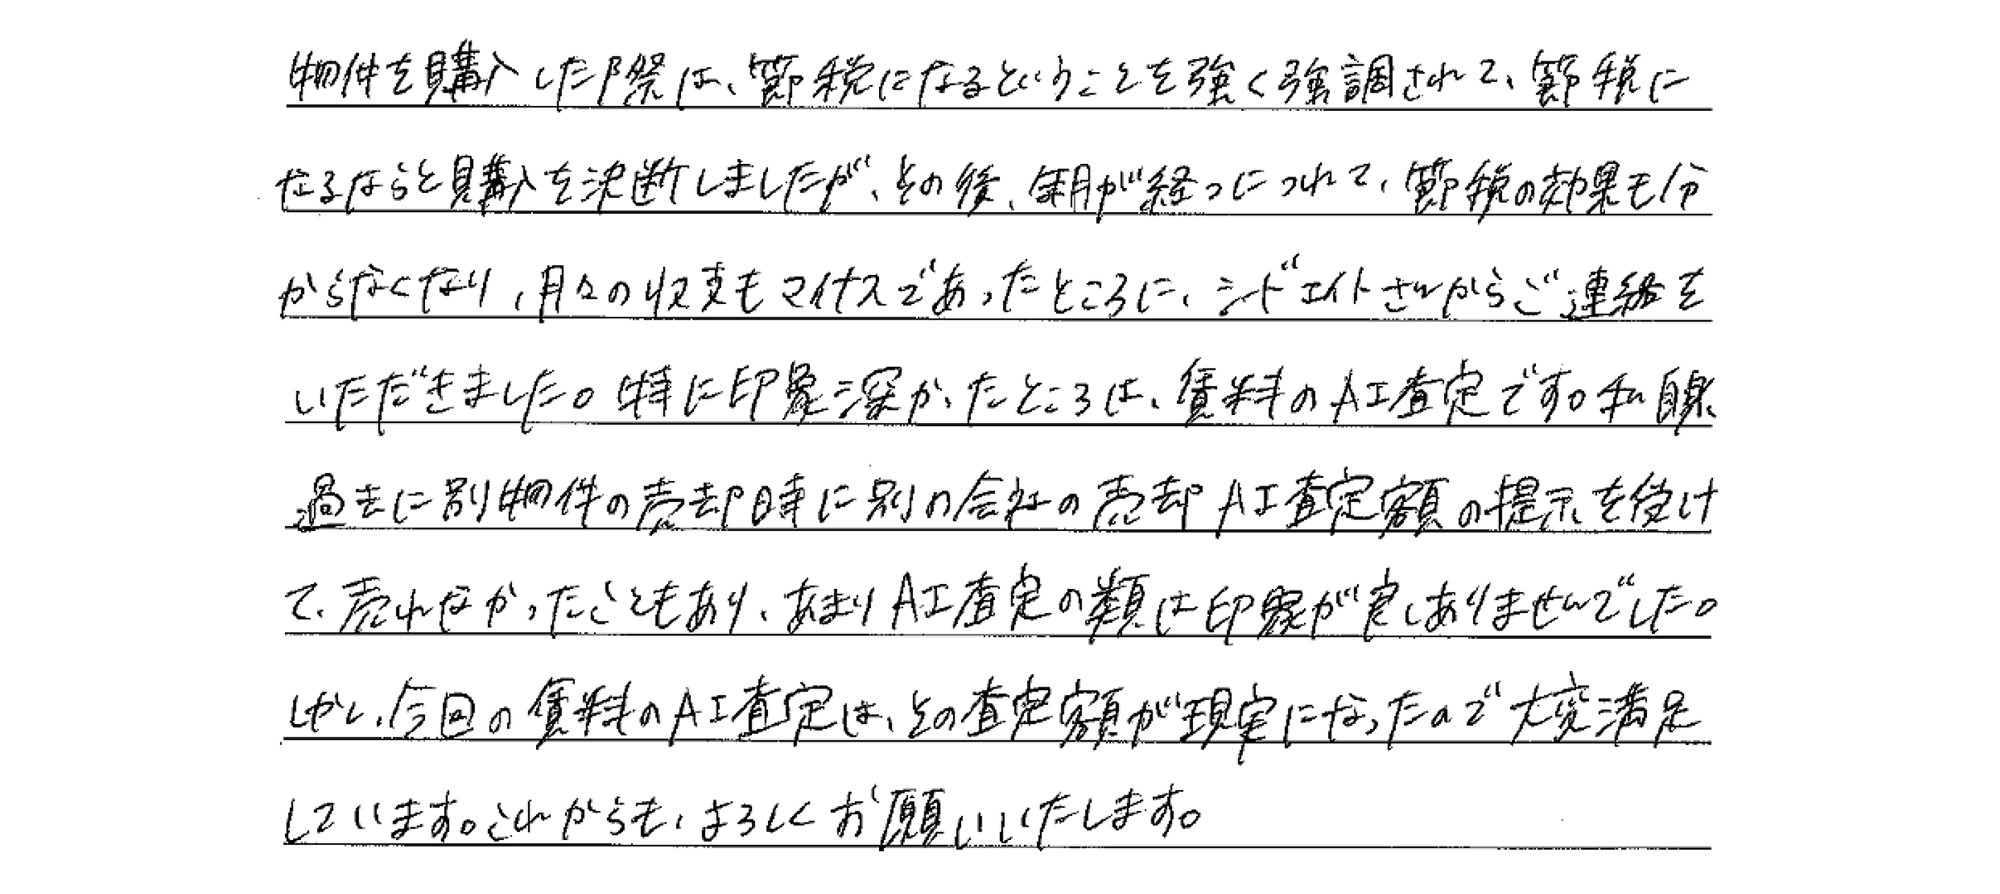 物件を購入した際は、節税になるということを強く強調されて、節税に
なるならと購入を決断しましたが、その後、年月が経つにつれて、節税の効果も分
からなくなり、月々の収支もマイナスであったところに、シドエイトさんからご連絡を
いただきました。特に印象深かったところは、賃料のAI査定です。私自身、
過去に別物件の売却時に別の会社の売却AI査定額の提示を受け
て、売れなかったこともあり、あまりAI査定の類は印象が良くありませんでした。
しかし、今回の賃料のAI査定は、その査定額が現実になったので大変満足
しています。これからも、よろしくお願いいたします。